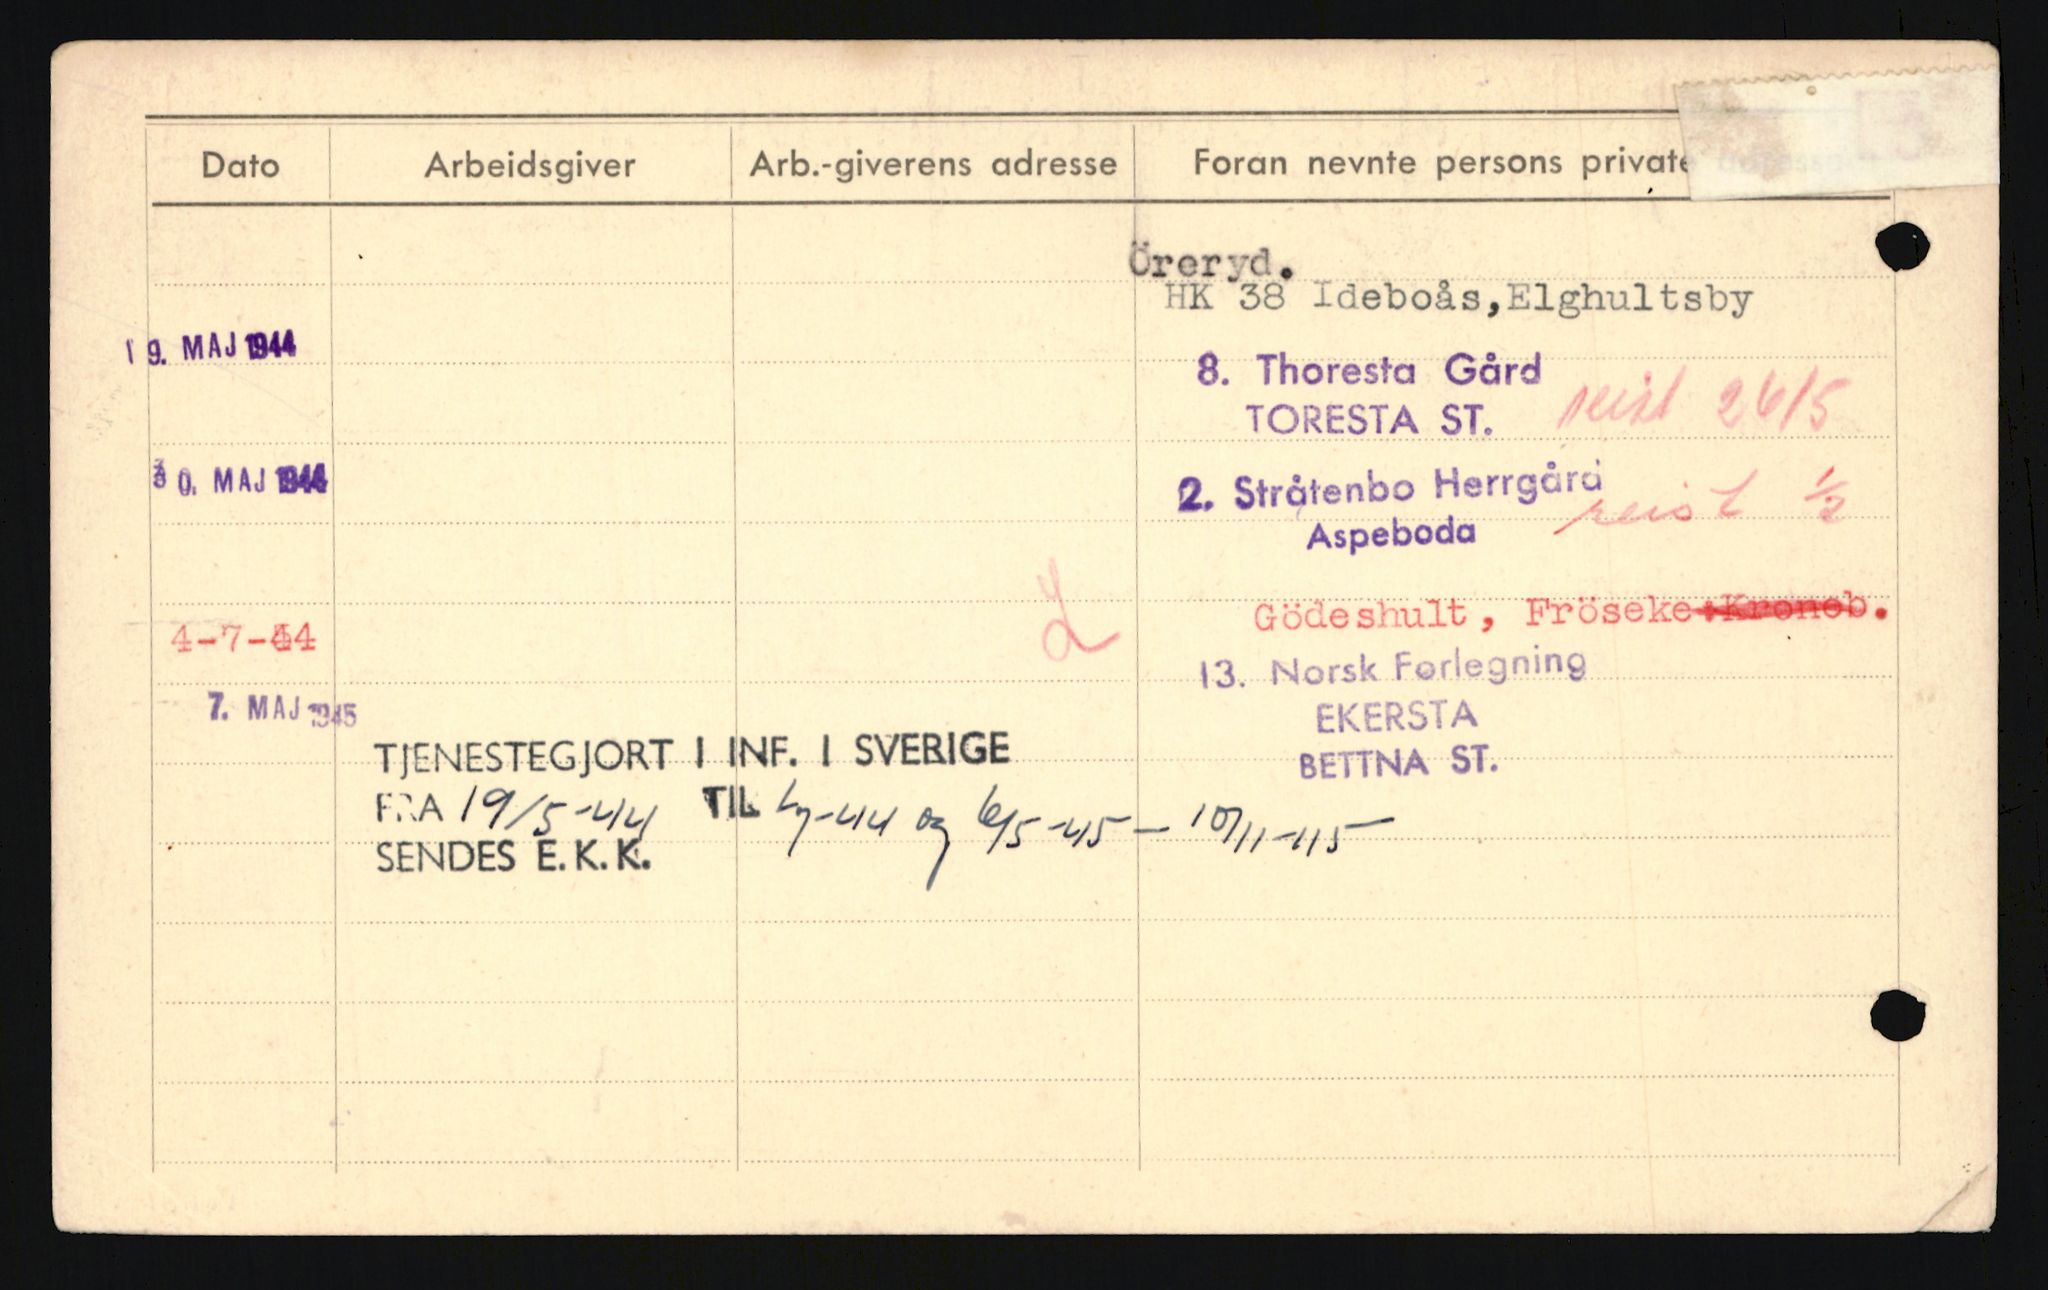 Dato Arbeidsgiver Arb.-giverens adresse Foran nevnte persons private
Öreryd.
HK 38 Ideboås, Elghultsby
19. MAJ 1944
8. Thoresta Gård
TORESTA ST. reist 26/5
30. MAJ 1944
2. Stråtenbo Herrgård
Aspeboda reist
Gödeshult, Fröseke, Kroneb.
4-7-44
13. Norsk Forlegning
7. MAJ 1945
EKERSTA
TJENESTEGJORT I INF. I SVERIGE
BETTNA ST.
FRA 19/5-44 TIL -44 og 6/5-45 — 10/11-45
SENDES E.K.K.